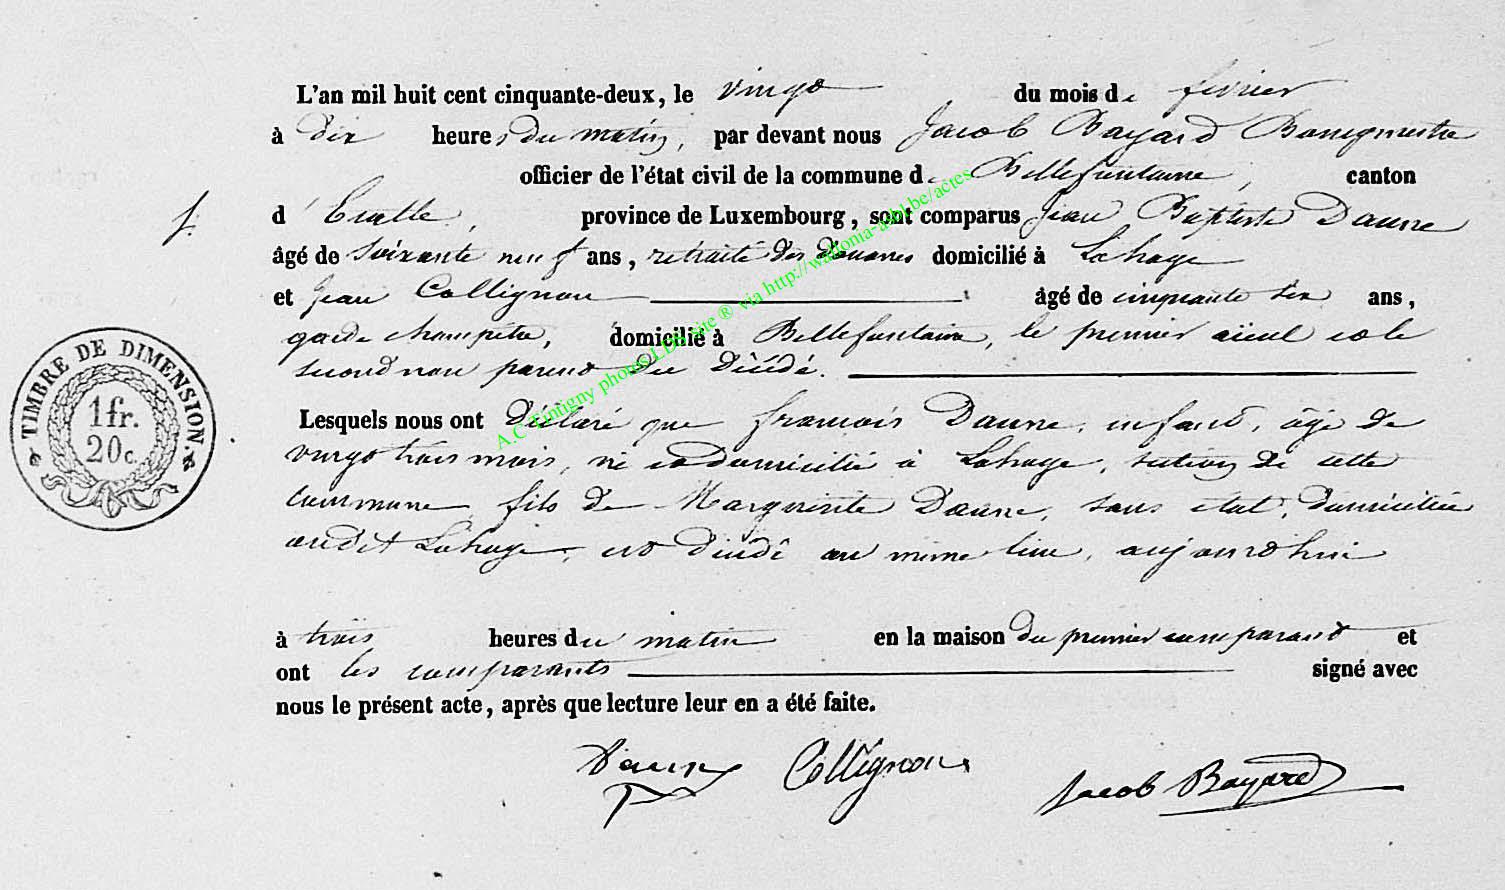 L'an mil huit cent cinquante-deux, le vingt du mois de février
à dix heures du matin, par devant nous Jacob Bayard Bourgmestre
officier de l'état civil de la commune de Bellefontaine, canton
d'Etalle, province de Luxembourg, sont comparus Jean Baptiste Daune
âgé de soixante neuf ans, retraité des douanes domicilié à Lahage
et Jean Collignon âgé de cinquante six ans,
garde champêtre, domicilié à Bellefontaine, le premier aïeul et le
second non parent du décédé.
Lesquels nous ont déclaré que francois Daune, enfant, âgé de
vingt trois mois, né et domicilié à Lahage, section de cette
commune fils de Marguerite Daune, sans état, domiciliée
audit Lahage, est décédé au même lieu, aujourd'hui
à trois heures du matin en la maison du premier comparant et
ont les comparants signé avec
nous le présent acte, après que lecture leur en a été faite.
Daune Collignon Jacob Bayard
TIMBRE DE DIMENSION.
1 fr.
20 c.
A.C. Tintigny photos LDS site ® via http://wallonia-asbl.be/actes